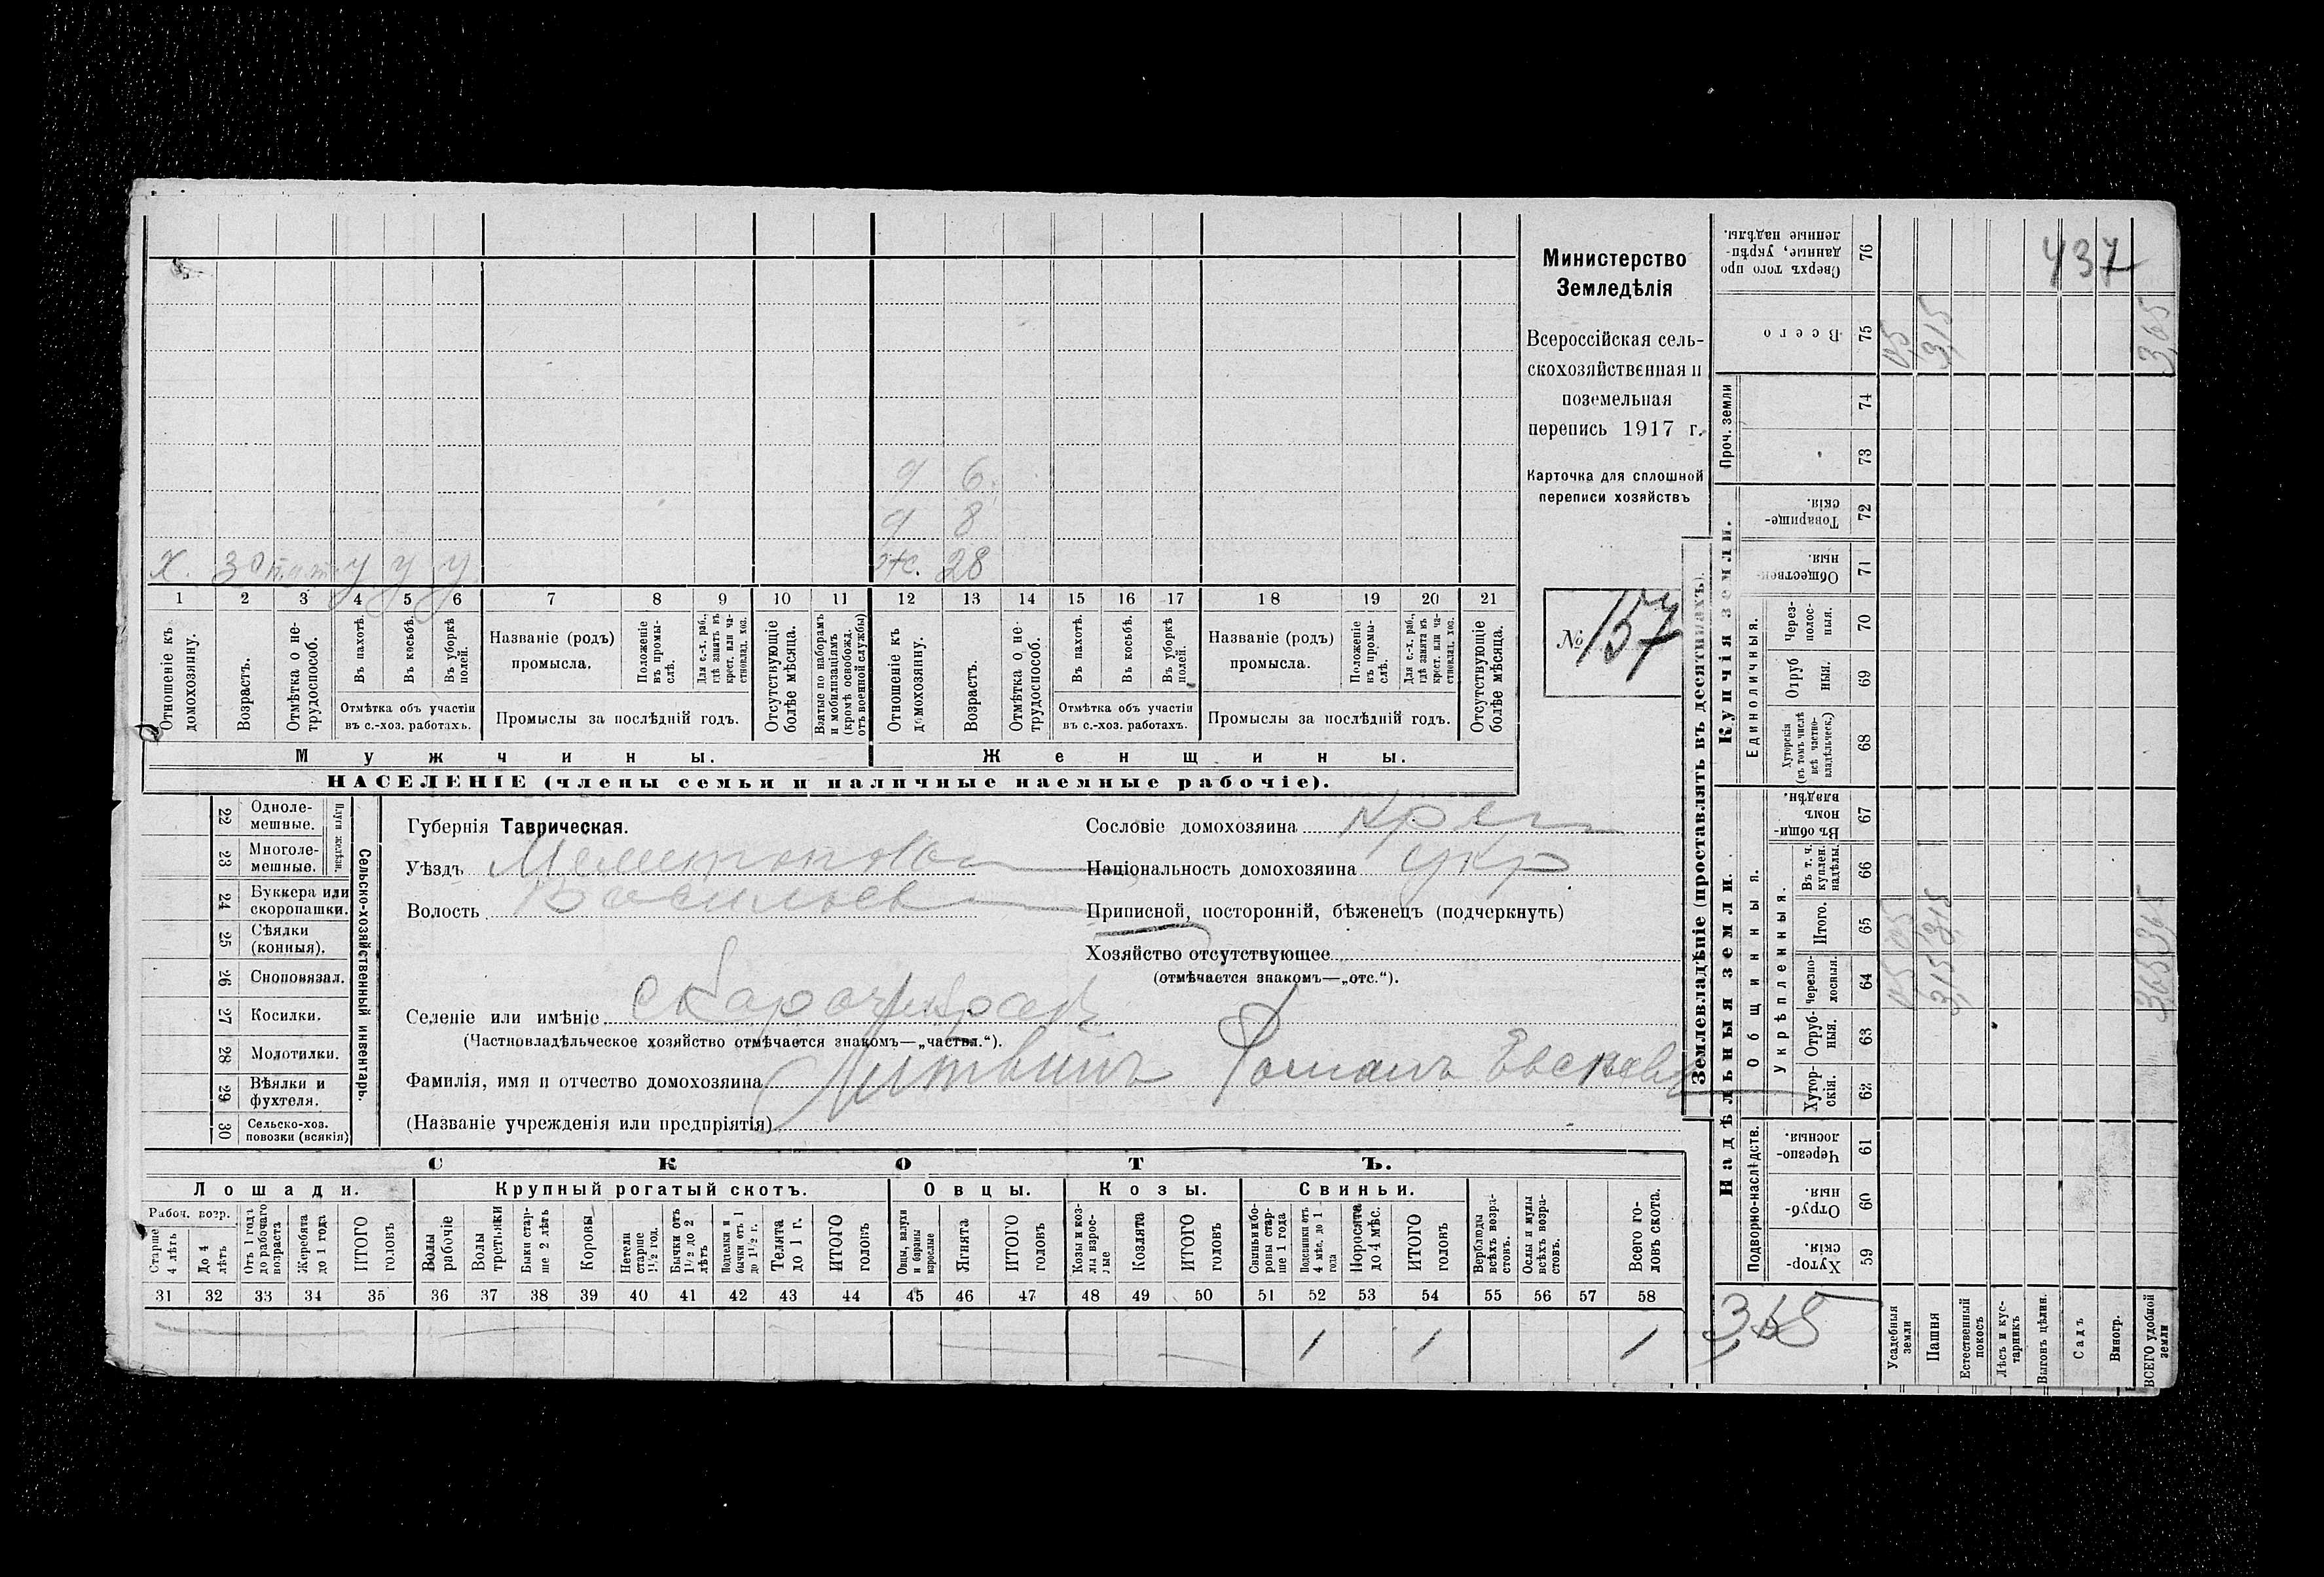 Министерство
Земледѣлія
Всероссійская сель-
скохозяйственная и
поземельная
перепись 1917 г.
Карточка для сплошной
переписи хозяйствъ
№ 157
437
д 6
д 8
х. 30 у у у
ж. 28
1 2 3 4 5 6 7 8 9 10 11 12 13 14 15 16 17 18 19 20 21
Отношеніе къ домохозяину.
Возрастъ.
Отмѣтка о не-трудоспособ.
Въ пахотѣ.
Въ косьбѣ.
Въ уборкѣ полей.
Отмѣтка объ участіи
въ с.-хоз. работахъ.
Названіе (родъ)
промысла.
Положеніе въ промы-слѣ.
Для с.-х. раб., гдѣ занятъ въ крест. или ча-стновлад. хоз.
Промыслы за послѣдній годъ.
Отсутствующіе болѣе мѣсяца.
Взятые по наборамъ и мобилизаціямъ (кромѣ освобожд. отъ военной службы)
Отношеніе къ домохозяину.
Возрастъ.
Отмѣтка о не-трудоспособ.
Въ пахотѣ.
Въ косьбѣ.
Въ уборкѣ полей.
Отмѣтка объ участіи
въ с.-хоз. работахъ.
Названіе (родъ)
промысла.
Положеніе въ промы-слѣ.
Для с.-х. раб., гдѣ занята въ крест. или ча-стновлад. хоз.
Промыслы за послѣдній годъ.
Отсутствующіе болѣе мѣсяца.
Мужчины. Женщины.
НАСЕЛЕНІЕ (члены семьи и наличные наемные рабочіе).
Сельско-хозяйственный инвентарь.
Плуги желѣзн.
22 Одноле-мешные.
23 Многоле-мешные.
24 Буккера или скоропашки.
25 Сѣялки (конныя).
26 Сноповязал.
27 Косилки.
28 Молотилки.
29 Вѣялки и фухтеля.
30 Сельско-хоз. повозки (всякія)
Губернія Таврическая.
Уѣздъ Мелитопо
Волость Васильев
Селеніе или имѣніе
(Частновладѣльческое хозяйство отмѣчается знакомъ—„частвл.“).
Фамилія, имя и отчество домохозяина Литвинъ Романъ
(Названіе учрежденія или предпріятія)
Сословіе домохозяина крест
Національность домохозяина укр
Приписной, посторонній, бѣженецъ (подчеркнуть)
Хозяйство отсутствующее
(отмѣчается знакомъ—„отс.“).
СКОТЪ.
Лошади. Крупный рогатый скотъ. Овцы. Козы. Свиньи.
Рабоч. возр.
Старше 4 лѣтъ
До 4 лѣтъ
Отъ 1 года до рабочаго возраста
Жеребята до 1 года
ИТОГО головъ
Волы рабочіе
Волы третьяки
Быки стар-ше 2 лѣтъ
Коровы
Нетели старше 1½ год.
Бычки отъ 1½ до 2 лѣтъ
Подтелки и бычки отъ 1 до 1½ г.
Телята до 1 г.
ИТОГО головъ
Овцы, валухи и бараны взрослые
Ягнята
ИТОГО головъ
Козы и коз-лы взрос-лые
Козлята
ИТОГО головъ
Свиньи и бо-ровы стар-ше 1 года
Подсвинки отъ 4 мѣс. до 1 года
Поросята до 4 мѣс.
ИТОГО головъ
Верблюды всѣхъ возра-стовъ.
Ослы и мулы всѣхъ возра-стовъ.
Всего го-ловъ скота.
31 32 33 34 35 36 37 38 39 40 41 42 43 44 45 46 47 48 49 50 51 52 53 54 55 56 57 58
1 1 1
Землевладѣніе (проставлять въ десятинахъ).
Надѣльныя земли.
Купчія земли.
Проч. земли
Подворно-наслѣдств.
Общинныя.
Укрѣпленныя.
Единоличныя.
Сверхъ того про-даные, укрѣп-ленные надѣлы. 76
Всего 75 0,5 3,15 3,65
74
73
Товарище-скія. 72
Обществен-ныя. 71
Через-полос-ныя. 70
Отруб-ныя. 69
Хуторскія (въ томъ числѣ всѣ частно-владѣльческ.) 68
Въ общин-номъ владѣн. 67
Въ т. ч. куплен. надѣлы. 66
Итого. 65 0,5 3,15 3,65
Черезпо-лосныя. 64 0,5 3,15 3,65
Отруб-ныя. 63
Хутор-скія. 62
Черезпо-лосныя. 61
Отруб-ныя. 60
Хутор-скія. 59
3,65
Усадебныя земли
Пашня
Естественный покосъ
Лѣсъ и кус-тарникъ
Выгонъ цѣлин.
Садъ
Виногр.
ВСЕГО удобной земли